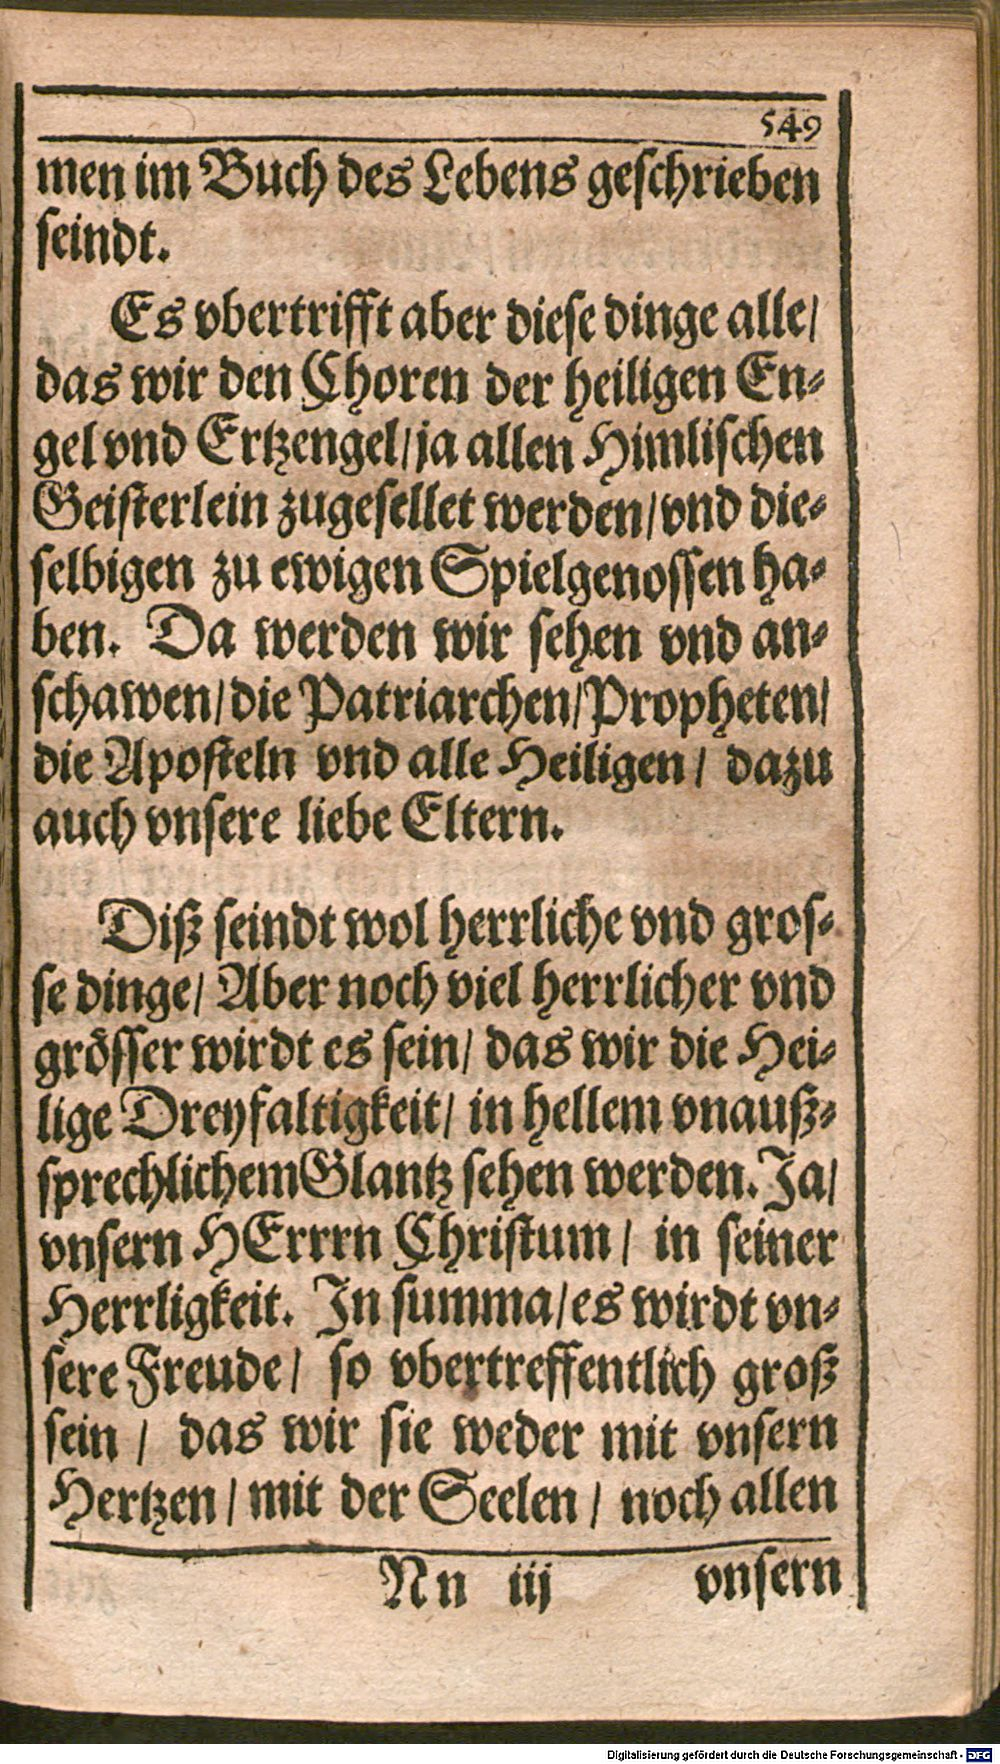 549
men im Buch des Lebens geschrieben
seindt.
Es vbertrifft aber diese dinge alle/
das wir den Choren der heiligen En-
gel vnd Ertzengel/ja allen Himlischen
Geisterlein zugesellet werden/vnd die-
selbigen zu ewigen Spielgenossen ha-
ben. Da werden wir sehen vnd an-
schawen/die Patriarchen/Propheten/
die Aposteln vnd alle Heiligen/ dazu
auch vnsere liebe Eltern.
Diß seindt wol herrliche vnd gros-
se dinge/ Aber noch viel herrlicher vnd
grösser wirdt es sein/ das wir die Hei-
lige Dreyfaltigkeit/ in hellem vnauß-
sprechlichem Glantz sehen werden. Ja/
vnsern HErrrn Christum/ in seiner
Herrligkeit. In summa/es wirdt vn-
sere Freude/ so vbertreffentlich groß
sein/ das wir sie weder mit vnsern
Hertzen/ mit der Seelen/ noch allen
Nn iij vnsern
Digitalisierung gefördert durch die Deutsche Forschungsgemeinschaft - DFG